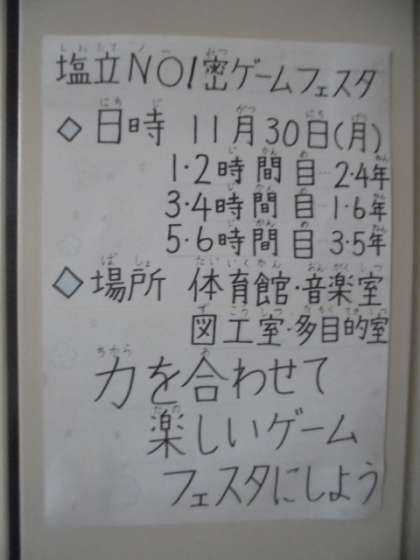 塩立NO1密ゲームフェスタ
◇日時 11月30日(月)
1・2時間目…2・4年
3・4時間目…1・6年
5・6時間目…3・5年
◇場所 体育館・音楽室
図工室・多目的室
力を合わせて
楽しいゲーム
フェスタにしよう